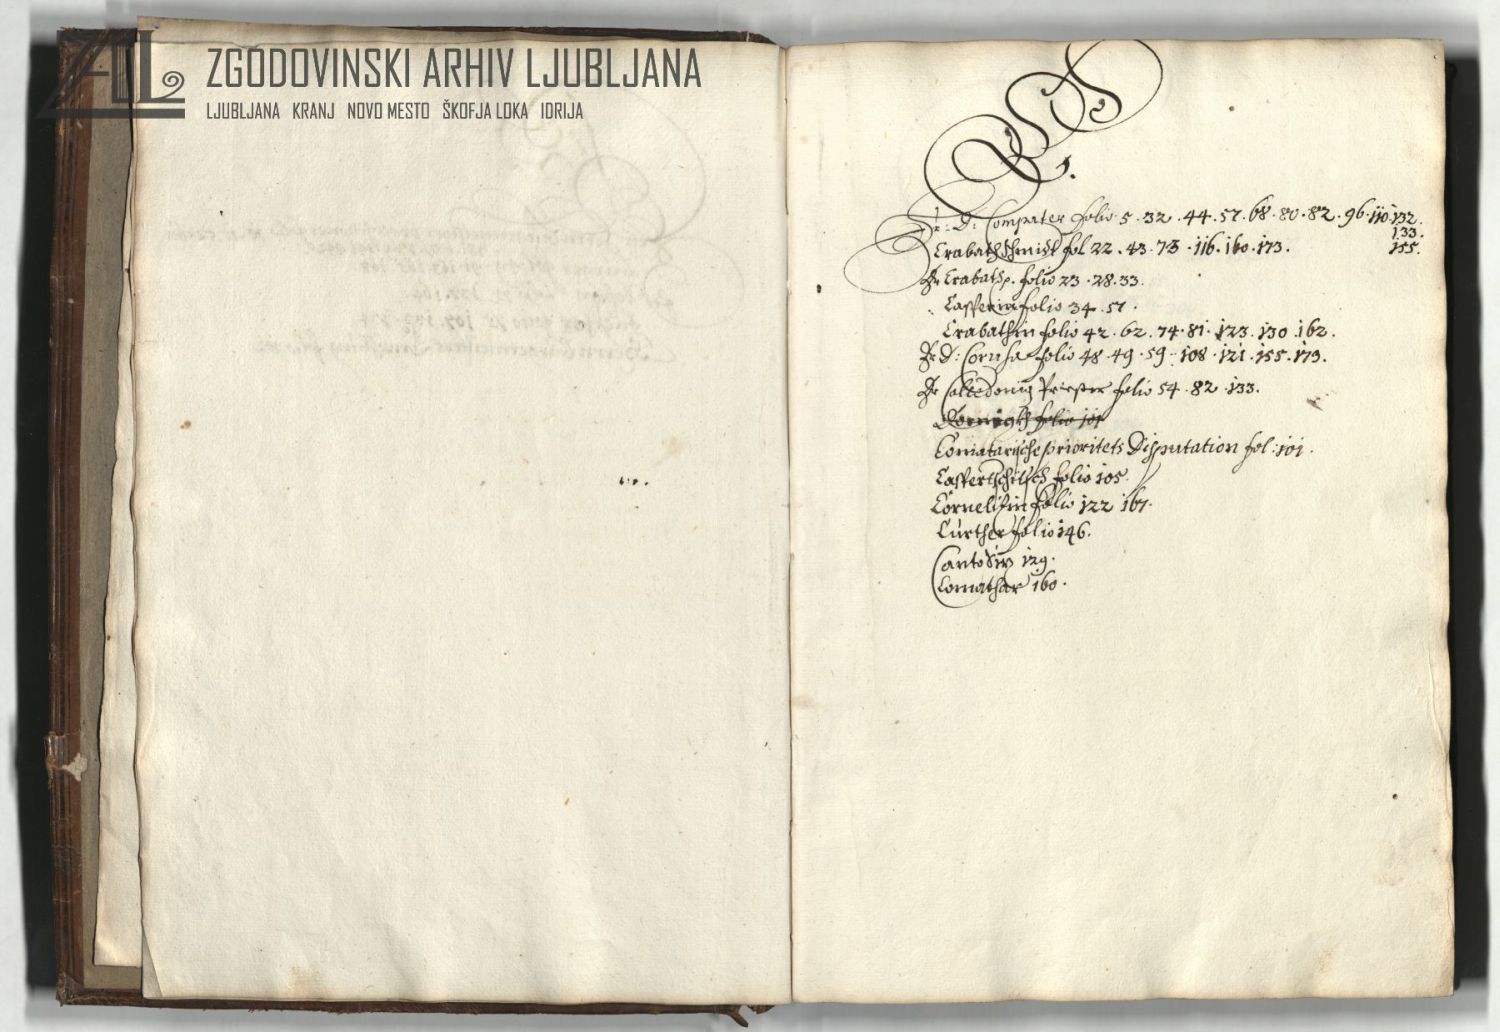 ZGODOVINSKI ARHIV LJUBLJANA
LJUBLJANA KRANJ NOVO MESTO ŠKOFJA LOKA IDRIJA
C.
Hr: D: Compater folio 5 . 32 . 44 . 57 . 68 . 80 . 82 . 96 . 110 . 132 .
133 .
155 .
Crabathschmidt fol 22 . 43 . 73 . 116 . 160 . 173 .
Hr Crabath folio 23 . 28 . 33 .
folio 34 . 51 .
Crabathin folio 42 . 62 . 74 . 81 . 123 . 130 . 162 .
Hr D: folio 48 . 49 . 59 . 108 . 121 . 155 . 173 .
Hr Priester folio 54 . 82 . 133 .
folio 101
prioritets Disputation fol : 101 .
folio 105 .
folio 122 167 .
Curther folio 146 .
129 .
Comathar 160 .